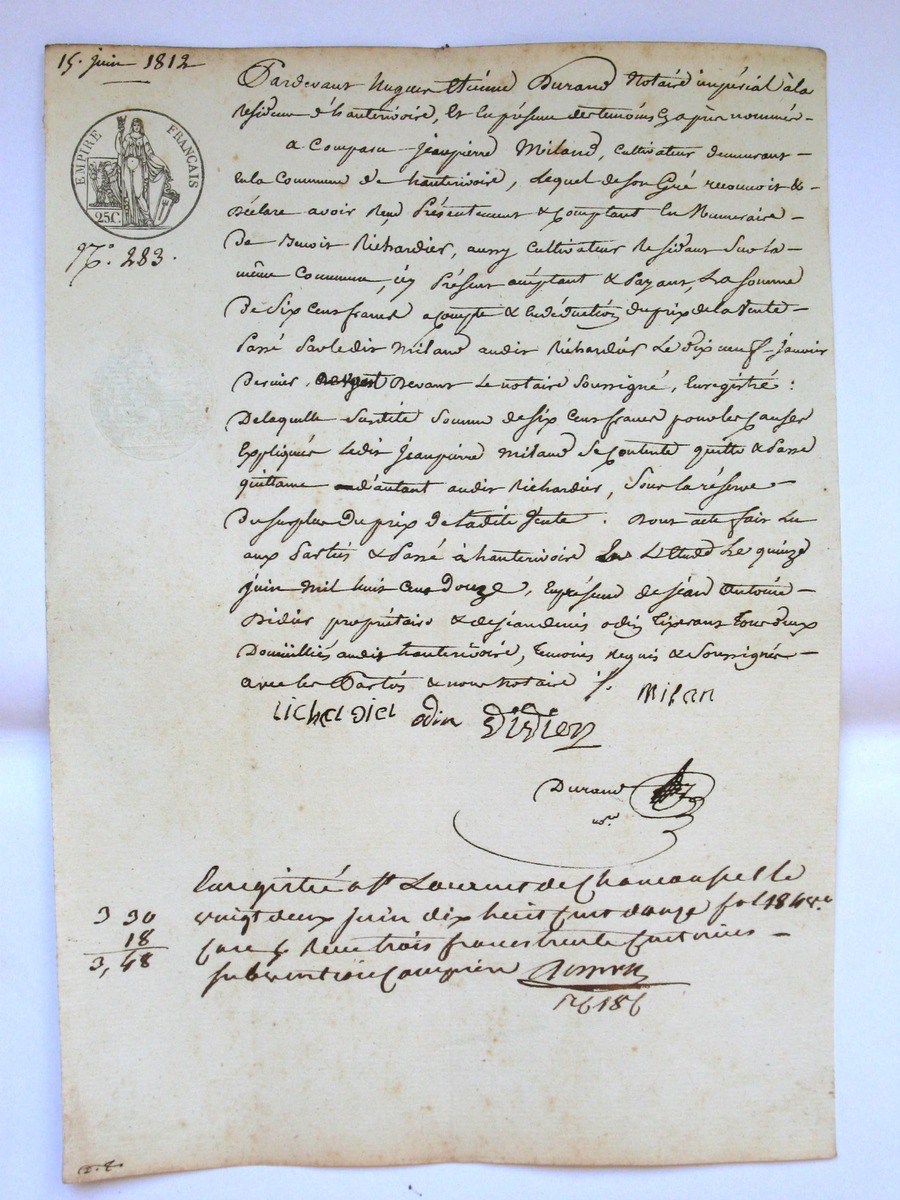 15. juin 1812
EMPIRE FRANÇAIS
25C.
N.° 283.
Pardevant hugues etiénne Durand Notaire impérial à la
Résidence d'hauterivoire, et en présence des temoins cy après nommés
a Comparu Jeanpierre Miland, Cultivateur demeurant
en la Commune de hauterivoire, lequel de son Gré reconnoit &
déclare avoir Reçu Présentement & Comptant En Numeraire
De Benoit Richardier, aussy Cultivateur Residant Sur la
même Commune, icy Présent acceptant & Payant, La Somme
De Six Cens francs acompte & en déduction du prix de la Vente
Passé Par ledit Miland audit Richardier Le dix neuf Janvier
Dernier, devant Le notaire Soussigné, Enregistré :
De laquelle Susdite Somme de Six Cens francs pour les Causes
Expliquées Ledit Jeanpierre Miland Se Contente quitte & Passe
quittance d'autant audit Richardier, Sous la réserve
Du Surplus Du prix de ladite Vente. Dont acte fait Lu
aux Parties & Passé à hauterivoire En L'Etude Le quinze
juin Mil huit Cens Douze, En présence de Jean Antoine
Didier propriétaire & de Jean denis odin Tixerant Tous deux
Domicilliés audit hauterivoire, temoins Requis & Soussignés
avec les Parties & nous Notaire
Milan
Richardier odin Didier
Durand
no.re
Enregistré à St Laurent de Chamousset le
vingt deux juin dix huit cent douze fol 184 v.o
3 30
Case Reçu trois francs trente centimes
18
3,48
subvention comprise